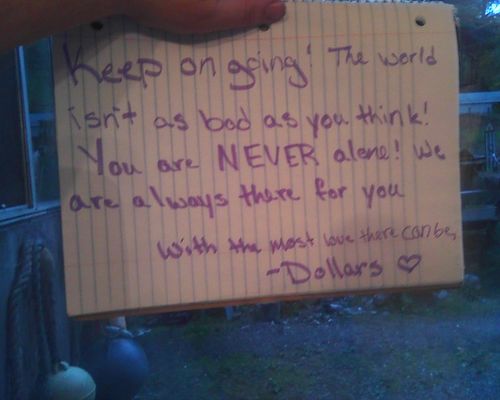 Keep on going! The world
isn't as bad as you think!
You are NEVER alone! We
are always there for you
with the most love there can be,
-Dollars ♡